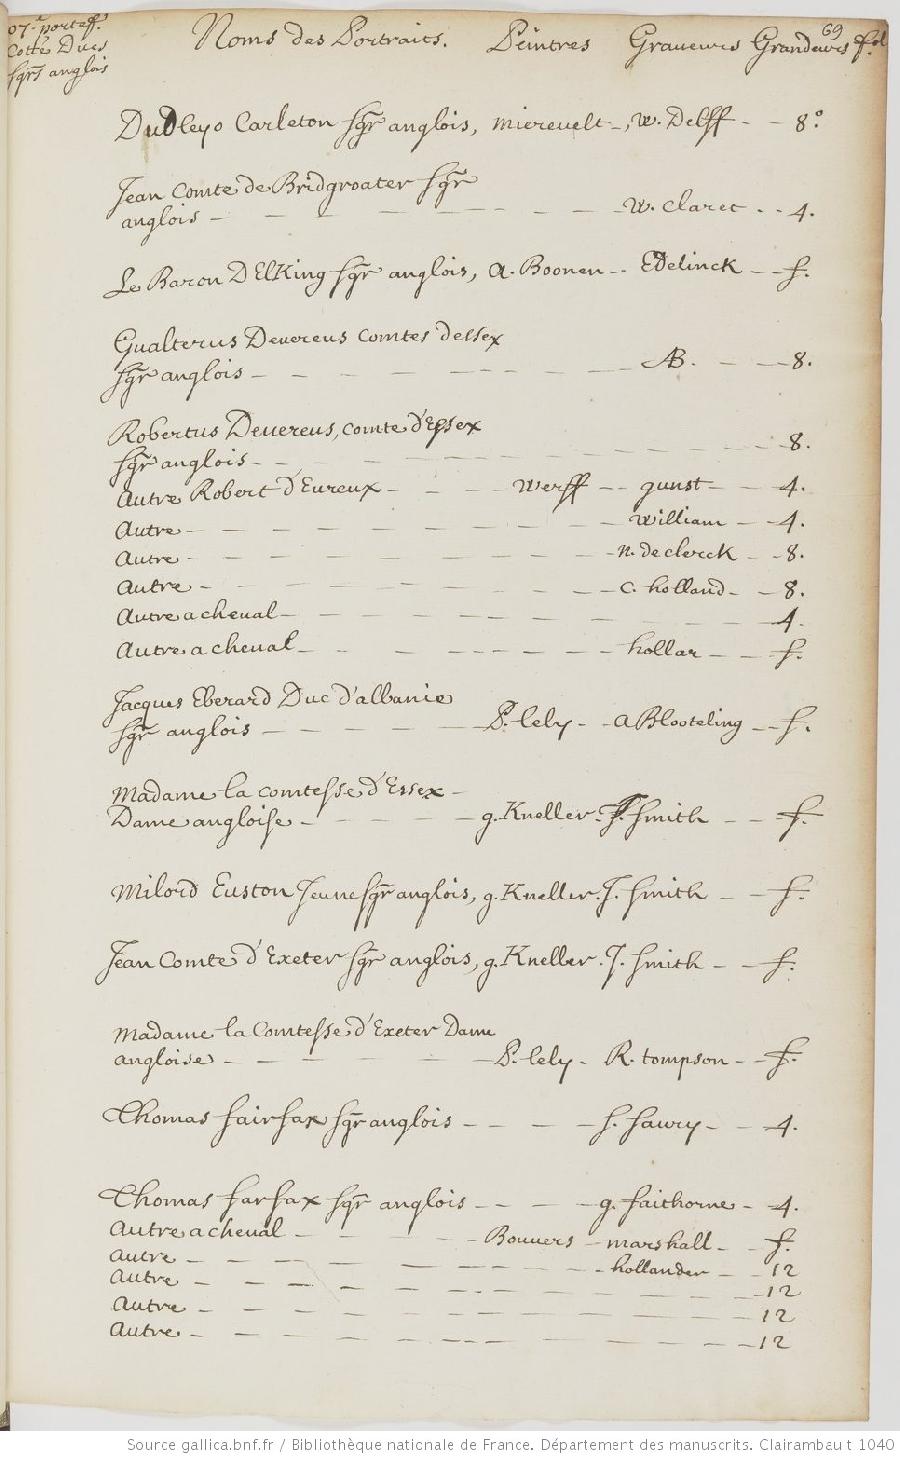 07.e portef. Noms des Portraits. Peintres Graveurs Grandeurs fol 69
Cotté Ducs
sgrs anglois
Dudleyo Carleton sgr anglois, mierevelt -, w. Delff - - 8º
Jean Comte de Bridgwater sgr
anglois - - - - - - w. Claret . . 4.
Le Baron D Elking sgr anglois, a. Boonen - - Edelinck - - f.
Gualterus Devereus comtes dessex
sgr anglois - - - - - - AB. - - 8.
Robertus Devereus, comte d'Essex
sgr anglois - - - - - - 8.
Autre Robert d'Eureux - - - werff - - gunst - - 4.
Autre - - - - - - william - - 4.
Autre - - - - - - n. de clerck - - 8.
Autre - - - - - - c. holland - - 8.
Autre a cheval - - - - - - 4.
Autre a cheval - - - - - - hollar - - f.
Jacques Eberard Duc d'albanie
sgr anglois - - - - P. lely - - a Blooteling - - f.
Madame la comtesse d'Essex -
Dame angloise - - - - g. Kneller. J. Smith - - f.
Milord Euston Jeune sgr anglois, g. Kneller. J. Smith - - f.
Jean Comte d'Exeter sgr anglois, g. Kneller. J. Smith - - f.
Madame la Comtesse d'Exeter Dame
angloise - - - - P. lely - R. tompson - - f.
Thomas fairfax sgr anglois - - - - - 4.
Thomas farfax sgr anglois - - - - g. faithorne - 4.
Autre a cheval - - - - Bouvers - marshall - - f.
Autre - - - - - - hollander - - 12
Autre - - - - - - 12
Autre - - - - - - 12
Autre - - - - - - 12
Source gallica.bnf.fr / Bibliothèque nationale de France. Département des manuscrits. Clairambault 1040